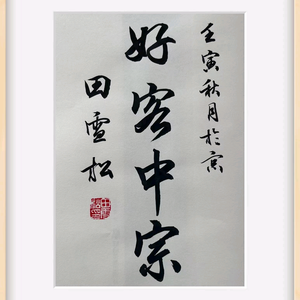 壬寅秋月於京
好客中宗
田雪松